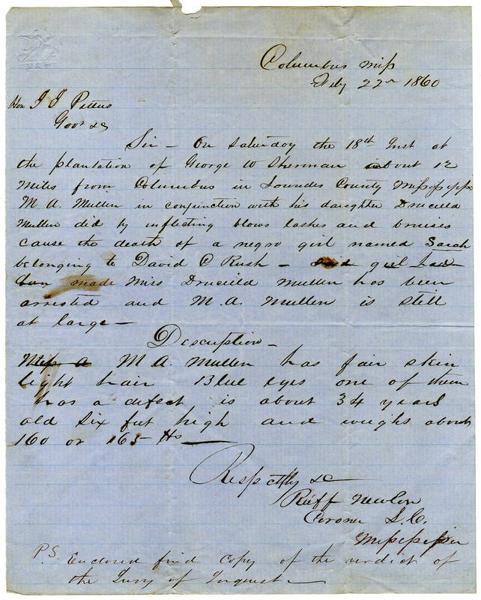 Columbus Miss
Feby 22nd 1860
Hon J J Pettus
Govr &c
Sir - On Saturday the 18th Inst at
the plantation of George W Sherman about 12
miles from Columbus in Lowndes County Mississippi
M A Mullen in conjunction with his daughter Druscilla
Mullen did by inflicting blows lashes and bruises
cause the death of a negro girl named Sarah
belonging to David C Rush - said girl had
made Miss Druscilla Mullen has been
arrested and M. A. Mullen is still
at large -
Description -
M A. Mullen has fair skin
light hair Blue eyes one of them
has a defect is about 34 years
old six feet high and weighs about
160 or 165 lbs -
Respectfly &c
Coroner L. C.
Mississippi
P.S. Enclosed find Copy of the verdict of
the Jury of Inquest -